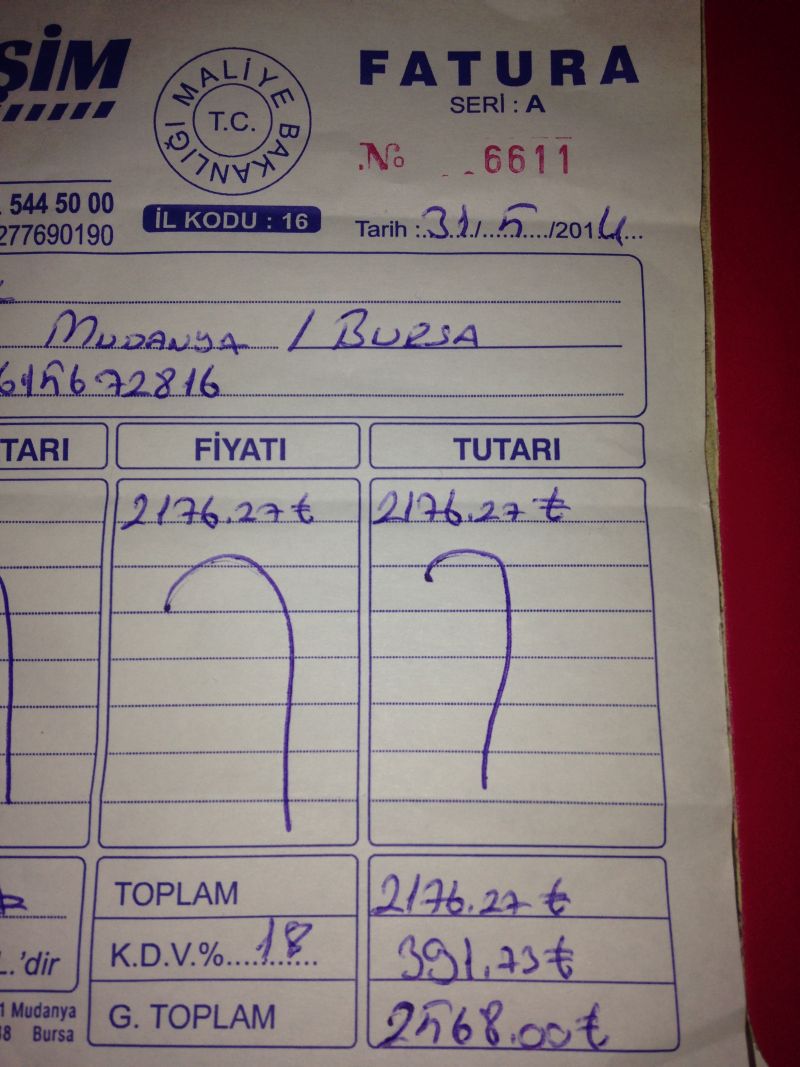 ŞİM
T.C. MALİYE BAKANLIĞI
FATURA
SERİ : A
No 6611
544 50 00
277690190
İL KODU : 16
Tarih : 31/5/2014
MUDANYA / BURSA
615672816
TARI FİYATI TUTARI
2176.27 ₺ 2176.27 ₺
TOPLAM 2176.27 ₺
K.D.V.% 18 391.73 ₺
L.'dir
G. TOPLAM 2568.00 ₺
1 Mudanya
Bursa